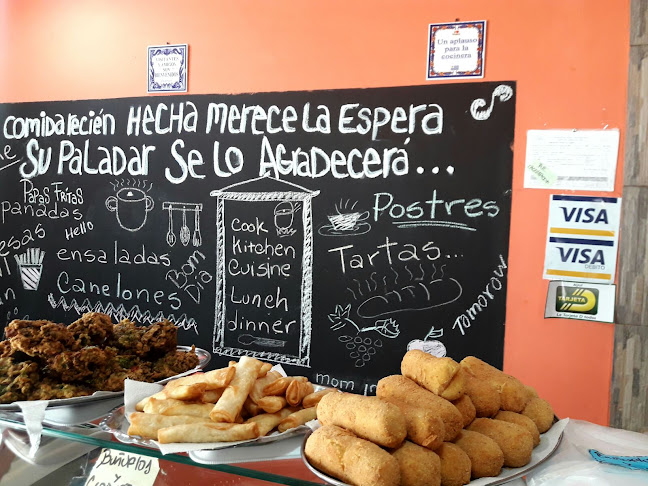 VISITANTES
Y AMIGOS
SON
BIENVENIDOS
Un aplauso
para la
cocinera
COMIDA recién HECHA MERECE LA ESPERA
SU PALADAR SE LO AGRADECERÁ...
PAPAS FRITAS
panadas
Hello
esas
ensaladas
Canelones
Bom
Dia
COOK
KITCHEN
CUISINE
LUNCH
dinner
Postres
TARTAS...
TOMOROW
mom
VISA
VISA
DÉBITO
TARJETA
Buñuelos
y